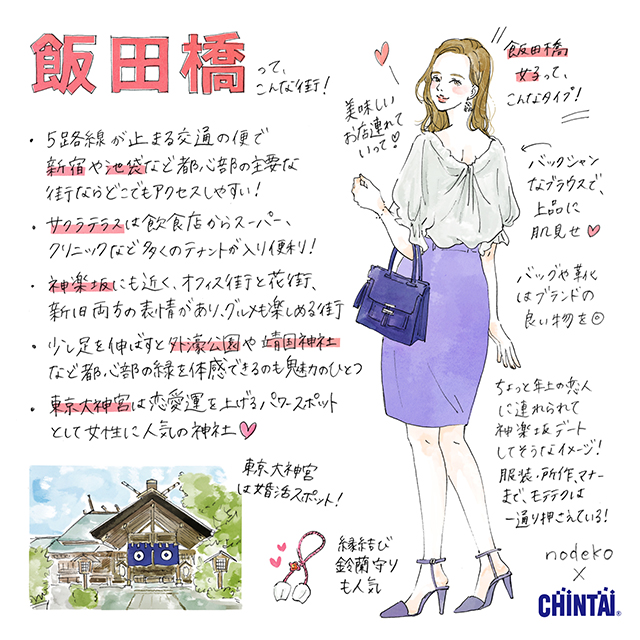 飯田橋
って、
こんな街！
・5路線が止まる交通の便で
新宿や池袋など都心部の主要な
街ならどこでもアクセスしやすい！
・サクラテラスは飲食店からスーパー、
クリニックなど多くのテナントが入り便利！
・神楽坂にも近く、オフィス街と花街、
新旧両方の表情があり、グルメも楽しめる街
・少し足を伸ばすと外濠公園や靖国神社
など都心部の緑を体感できるのも魅力のひとつ
・東京大神宮は恋愛運を上げるパワースポット
として女性に人気の神社♥
東京大神宮
は婚活スポット！
縁結び
鈴蘭守り
も人気
美味しい
お店連れて
いって♡
飯田橋
女子って、
こんなタイプ！
バックシャン
なブラウスで、
上品に
肌見せ♥
バッグや靴
はブランドの
良い物を◎
ちょっと年上の恋人
に連れられて
神楽坂デート
してそうなイメージ！
服装・所作、マナー
まで、モテテクは
一通り押さえている！
nodeko
×
CHINTAI®